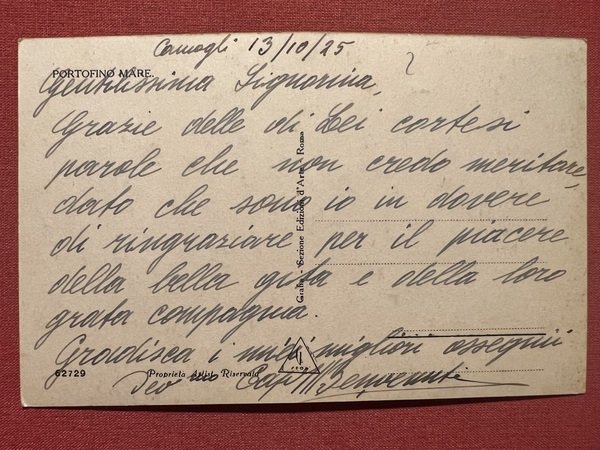 Camogli 13/10/25
PORTOFINO MARE.
Gentilissima Signorina,
Grazie delle di Lei cortesi
parole che non credo meritare,
dato che sono io in dovere
di ringraziare per il piacere
della bella gita e della loro
grata compagnia.
Gradisca i miei migliori ossequii
Dev mo Cap Benvenuti
62729
Proprietà Artist. Riservata
Grafia - Sezione Edizioni d'Arte - Roma